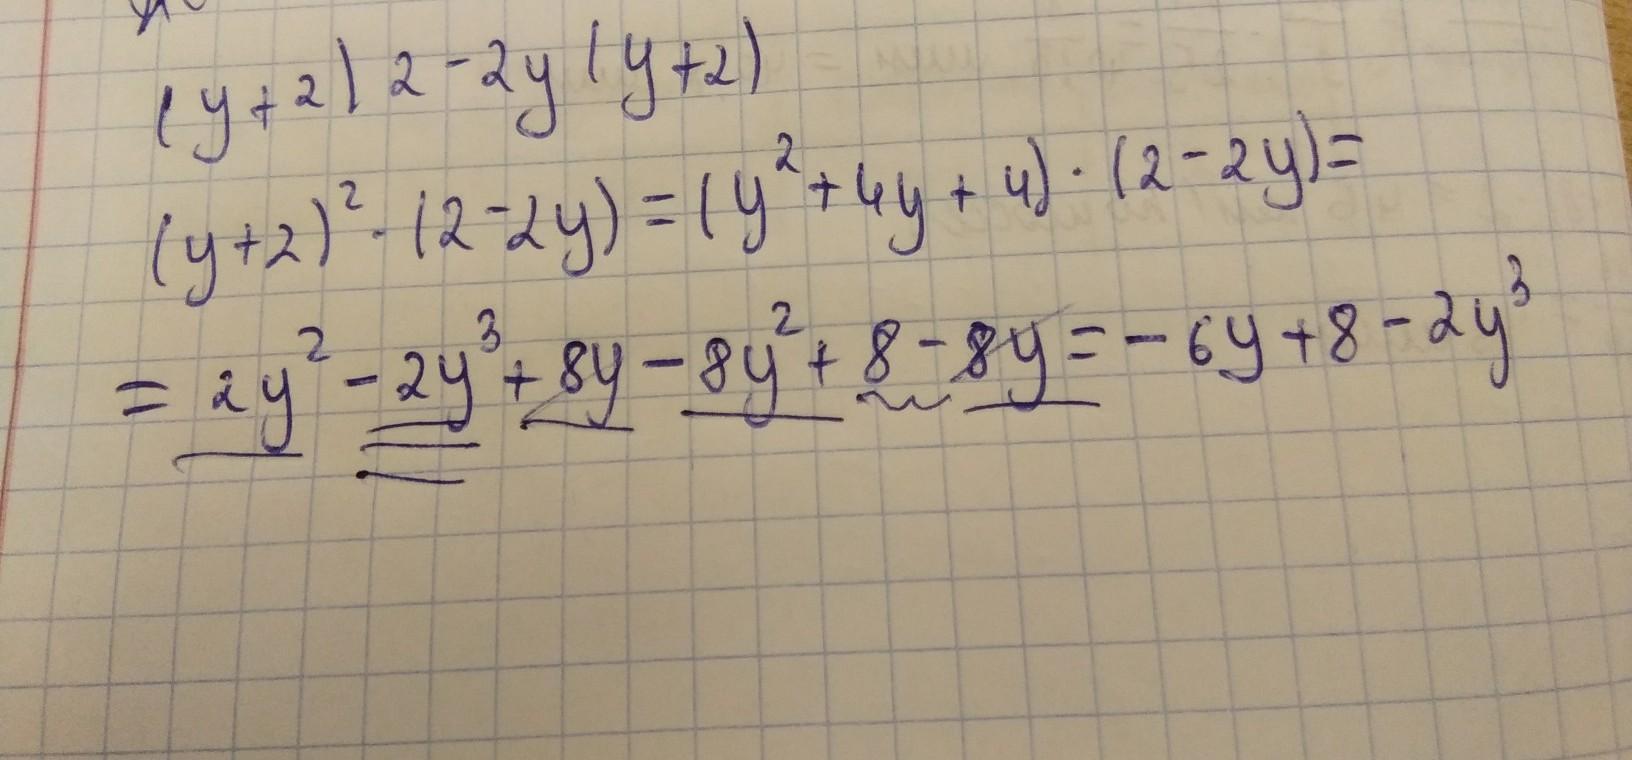 (y+2)2-2y(y+2)
(y+2)²·(2-2y)=(y²+4y+4)·(2-2y)=
=2y²-2y³+8y-8y²+8-8y=-6y+8-2y³